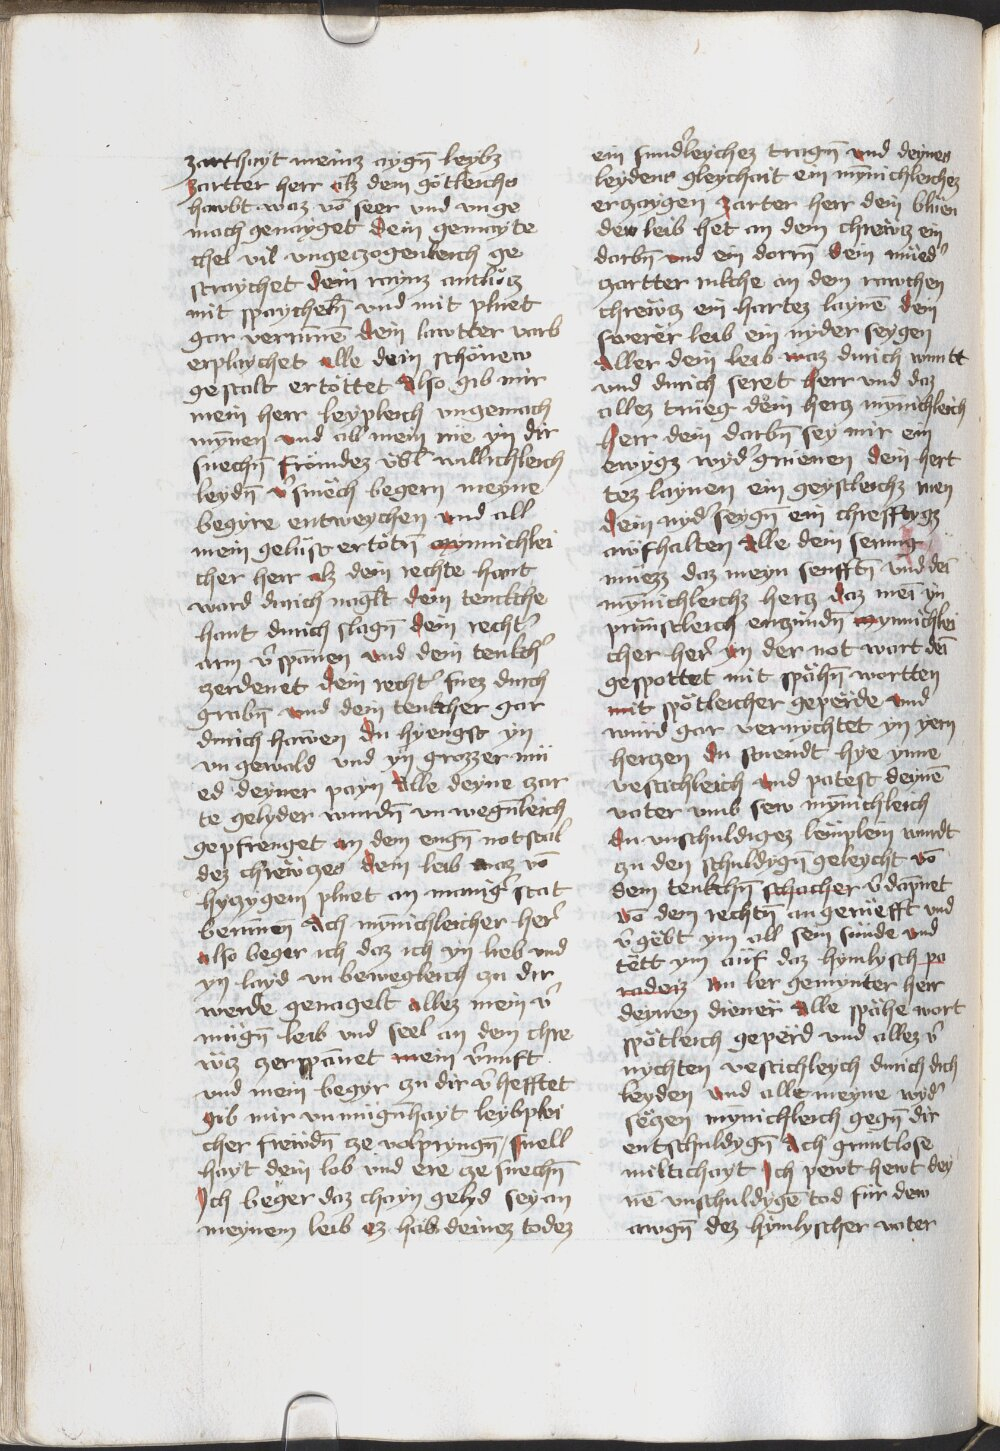 zarthayt meinz aygn̄ leybz
zartter herr alz dein götleichs
hawbt waz vō seer vnd vnge
mach genayget dein genayte
chel vil vngezogenleich ge
straychet dein raynz antlütz
mit spaycheln̄ vnd mit pluet
gar verrunnē dein lawtter varb
erplaychet alle dein schönew
gestalt ertöttet also gib mir
mein herr leypleich vngemach
mynnen vnd all mein rue yn dir
suechn̄ frömdez vbl willichleich
leydn̄ v̄smäch begern meyne
begyre entweychen vnd all
mein gelüst ertötn̄ mynnichlei
cher herr alz dein rechte hant
ward durich naglt dein tenckche
hant durich slagn̄ dein recht'
arm v̄spānen vnd dein tenkch'
zerdenet dein recht' fuez durch
grabn̄ vnd dein tenkcher gar
durich hawen du hyengst yn
vngewald vnd yn grozzer mü
ed deyner payn alle deyne zar
te gelyder wurdn̄ vnwegn̄leich
gepfrenget an dem engn̄ notstal
dez chrewczes dein leib waz vō
hyczygem pluet an manig' stat
berunnen Ach mȳnichleicher her'
also beger ich daz ich yn lieb vnd
yn layd vnbewegleich zu dir
werde genagelt allez mein v̄
mügn̄ leib vnd seel an dem chre
wtz zerspānet mein v̄nuft
vnd mein begyr zu dir v̄hefftet
gib mir vnmügn̄hayt leybplei
cher frewdn̄ ze volpryngn̄ snell
hayt dein lob vnd ere ze suechn̄
Ich beger daz chayn gelyd sey an
meynem leib ez hab deinez todez
ein sunderleychez tragn̄ vnd deynes
leydens gleychait ein mȳnichleichez
erzaygen zarter herr dein blüen
der leib het an dem chrewtz ein
darbn̄ vnd ein dorrn̄ dein müed'
zartter rukche an dem rawchen
chrewtz ein hartez laynē dein
swerer leib ein nyder seygen
Aller dein leib waz durich wuntt
vnd durich seret herr vnd daz
allez trüeg dein hertz mȳnichleich
herr dein darbn̄ sey mir ein
ewigz wyd' grüenen dein hert
tez laynen ein geystleichz rwen
dein nyd' seygn̄ ein chrefftigz
aufhalten alle dein serung
müezz daz meyn senfftn̄ vnd dei
mȳnichleichz hertz daz mei yn
prünstleich enzündn̄ mynnichlei
cher her' yn der not wart dei
gespottet mit spähn̄ wortten
mit spötleicher geperde vnd
wurd gar vernychtet yn yern
herczen du stuendt hye ynne
vestichleich vnd patest deynē
vater vmb sew mȳnichleich
du vnschuldigez lemplein wurdt
zu den schuldygn̄ geleycht vō
dem tenkchn̄ schacher v̄dāmet
vō dem rechtn̄ angerüefft vnd
v̄gäbt ym all sein sünde vnd
tett ym auf daz hymlysch pa
radeiz Nu ler gemynter herr
deynen diener alle spähe wort
spötleich geperd vnd allez v̄
nychten vestichleych durich dich
leyden vnd alle meyne wyd'
säczen mȳnichleich gegn̄ dir
entschuldygn̄ Ach gruntlose
miltichayt Ich pewt hewt dey
nē vnschuldygē tod für dew
awgn̄ dez hymlyscher vater